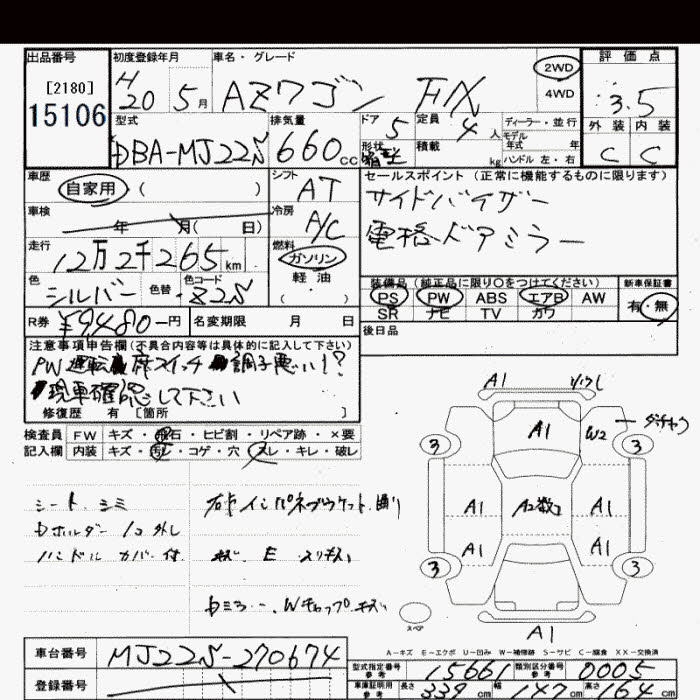 出品番号 初度登録年月 車名・グレード 評価点
[2180] H 20 5月 AZワゴン FX 2WD 4WD 3.5
15106 型式 排気量 ドア 定員 ディーラー・並行 外装 内装
DBA-MJ22S 660cc 5 4人 モデル年式 年 C C
形状 積載 kg ハンドル 左・右
車歴 シフト セールスポイント (正常に機能するものに限ります)
自家用 ( ) AT サイドバイザー
車検 冷房 電格ドアミラー
年 月( 日) A/C
走行 燃料
12万2千265km ガソリン
色 色替 色コード 軽油 装備品 (純正品に限り○をつけてください) 新車保証書
シルバー Z2S ( ) PS PW ABS エアB AW 有・無
SR ナビ TV カワ
R券 ¥9,480-円 名変期限 月 日 後日品
注意事項申告欄(不具合内容等は具体的に記入して下さい)
PW運転席スイッチ調子悪い!?
現車確認して下さい
修復歴 有 [箇所 ]
検査員 FW キズ・飛石・ヒビ割・リペア跡・×要
記入欄 内装 キズ・汚レ・コゲ・穴・スレ・キレ・破レ
A1
A1 W2
3 3
シート シミ
A1 A2数コ A1
Dホルダー 1コ外し
A1 A1
ハンドル カバー付
3 3
スペア
A1
A-キズ E-エクボ U-凹み W-補修跡 S-サビ C-腐食 XX-交換済
車台番号 MJ22S-270674 型式指定番号 参考 15661 類別区分番号 参考 0005
登録番号 車庫証明用 参考 長さ 339cm 幅 147cm 高さ 164cm